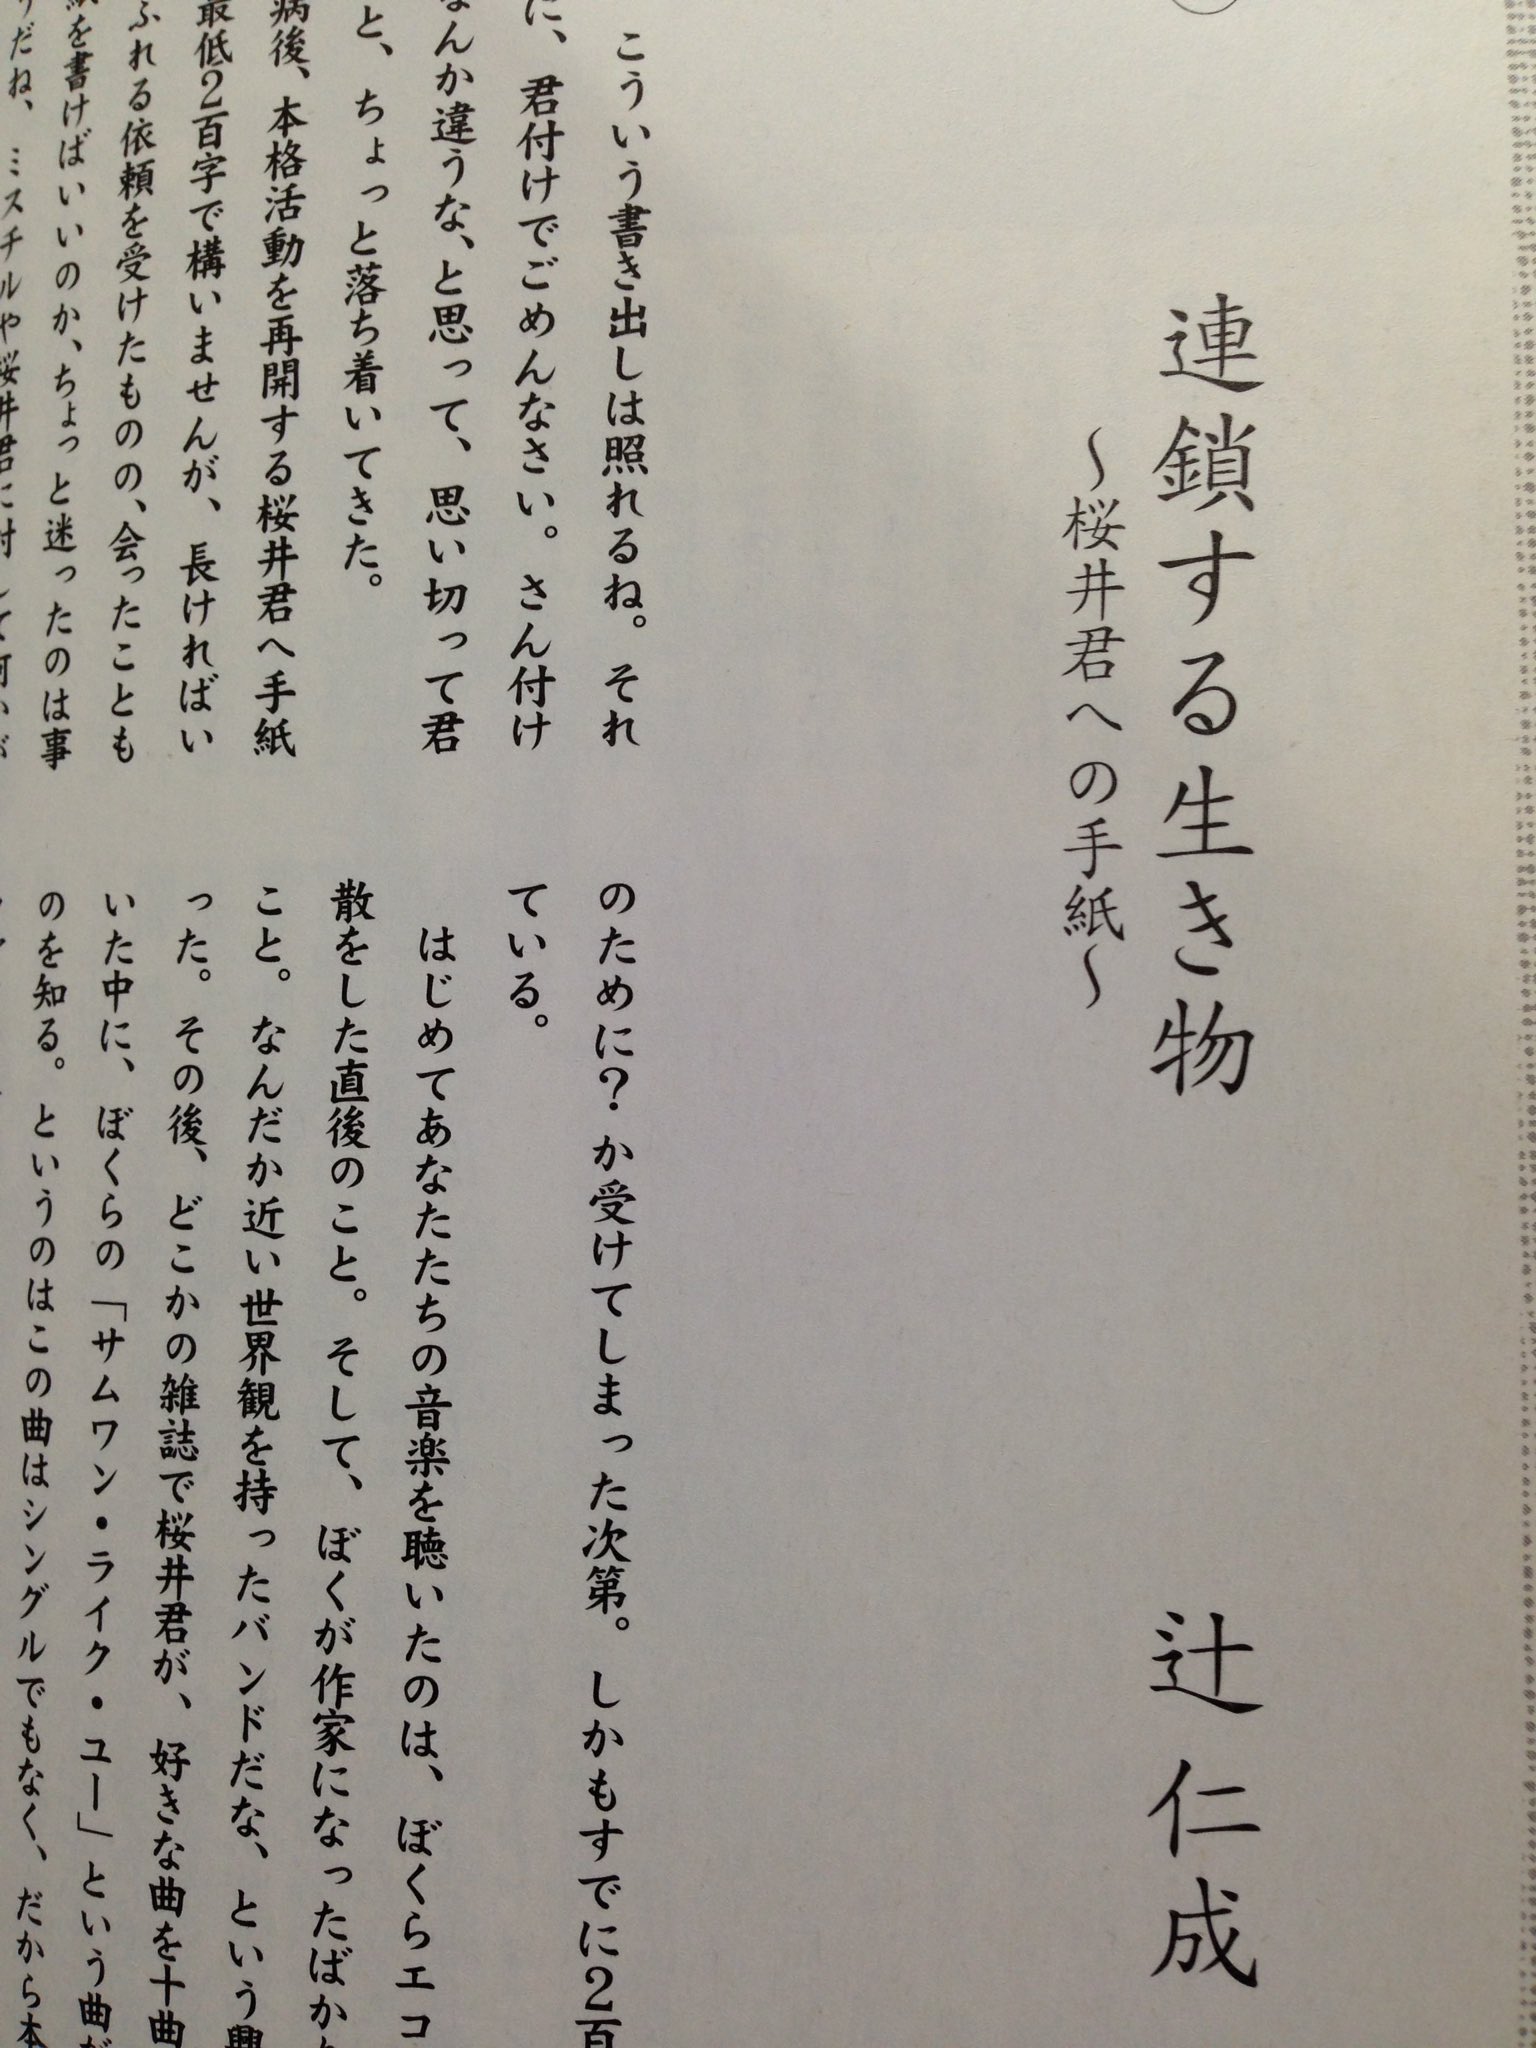 連鎖する生き物
～桜井君への手紙～
辻 仁成
こういう書き出しは照れるね。それ
に、君付けでごめんなさい。さん付け
なんか違うな、と思って、思い切って君
と、ちょっと落ち着いてきた。
病後、本格活動を再開する桜井君へ手紙
最低2百字で構いませんが、長ければいい
ふれる依頼を受けたものの、会ったことも
紙を書けばいいのか、ちょっと迷ったのは事
だね、ミスチルや桜井君に対して何か
のために?か受けてしまった次第。しかもすでに2百
ている。
はじめてあなたたちの音楽を聴いたのは、ぼくらエコ
散をした直後のこと。そして、ぼくが作家になったばか
こと。なんだか近い世界観を持ったバンドだな、という興
った。その後、どこかの雑誌で桜井君が、好きな曲を十曲
いた中に、ぼくらの「サムワン・ライク・ユー」という曲が
のを知る。というのはこの曲はシングルでもなく、だから本